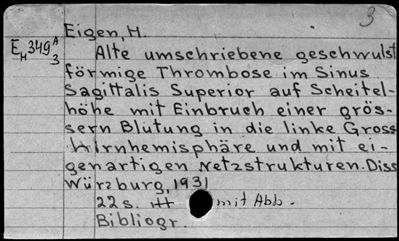 3
Eigen, H.
E_H349^A_3
Alte umschriebene geschwulst
förmige Thrombose im Sinus
Sagittalis Superior auf Scheitel-
höhe mit Einbruch einer grös-
sern Blutung in die linke Gross
Hirnhemisphäre und mit ei-
genartigen Netzstrukturen. Diss
Würzburg, 1931
22 s. mit Abb.
Bibliogr.